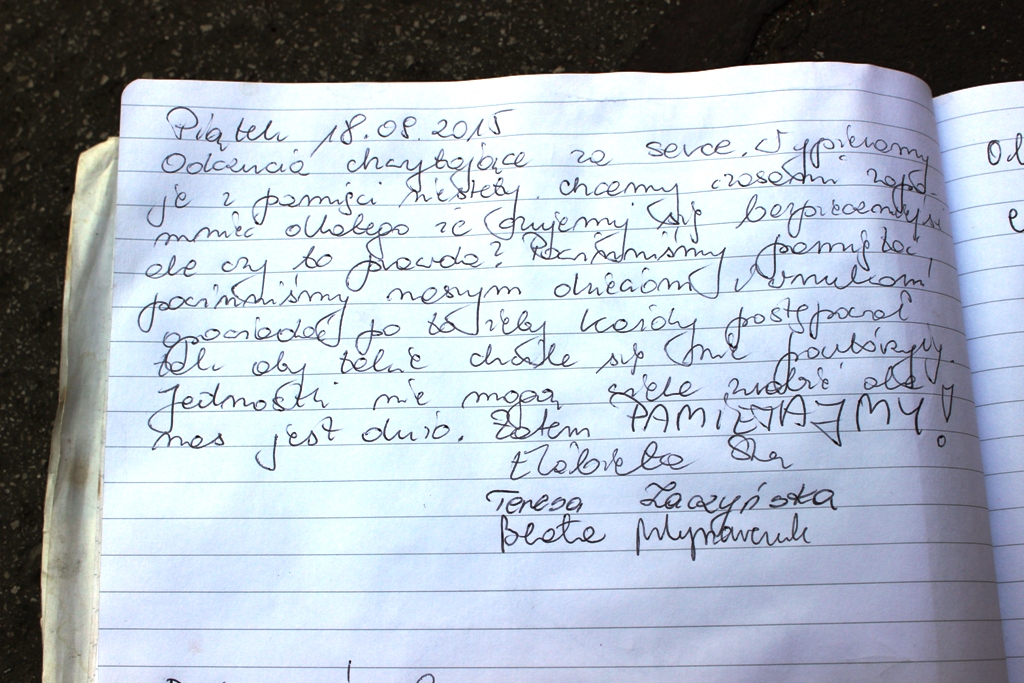 Piątek 18.09.2015
Odczucia chwytające za serce. Wypieramy
je z pamięci niestety. chcemy czasami zapo-
mnieć dlatego że czujemy się bezpieczni
ale czy to prawda? Powinniśmy pamiętać,
powinniśmy naszym dzieciom, wnukom
opowiadać po to żeby każdy postępował
tak aby takie chwile się nie powtórzyły.
Jednostki nie mogą wiele zrobić ale
nas jest dużo. Zatem PAMIĘTAJMY!
Elżbieta
Teresa Zaczyńska
Beata Młynarczuk
Od